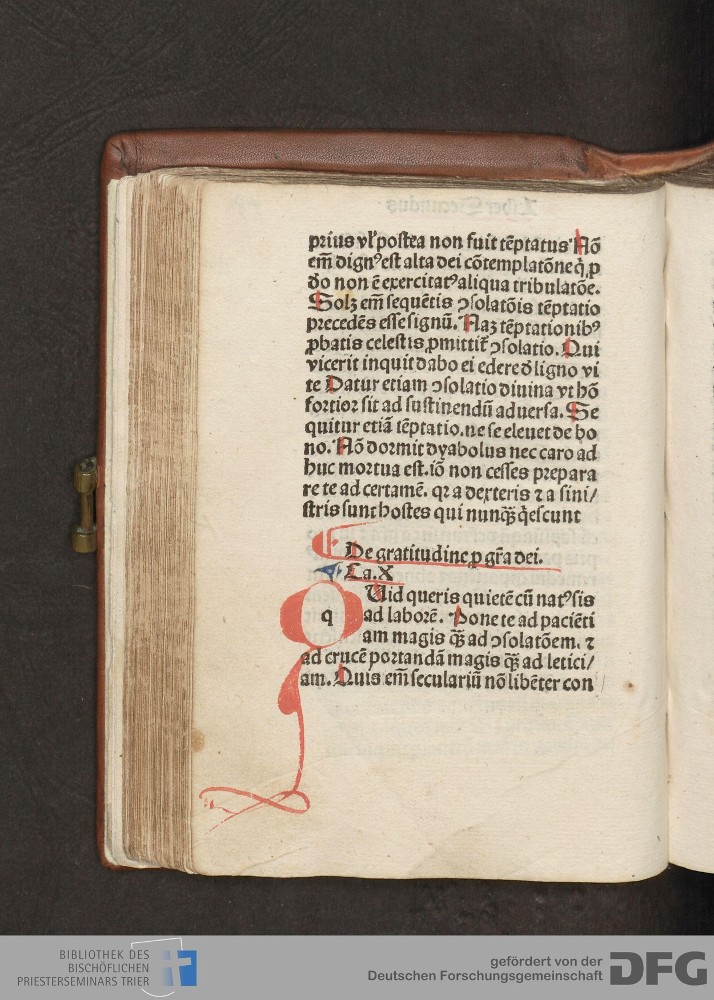 prius vl' postea non fuit tēptatus Nō
em̄ dignꝰ est alta dei cōtemplatōne q̇ ꝓ
do non ē exercitatꝰ aliqua tribulatōe.
Solꝫ em̄ sequētis ꝯsolatōis tēptatio
precedēs esse signū. Naꝫ tēptationibꝰ
ꝓbatis celestis ꝓmittit᷑ ꝯsolatio. Qui
vicerit inquit dabo ei edere d̄ ligno vi
te Datur etiam ꝯsolatio diuina vt hō
fortior sit ad sustinendū aduersa. Se
quitur etiā tēptatio. ne se eleuet de bo
no. Nō dormit dyabolus nec caro ad
huc mortua est. iō non cesses prepara
re te ad certamē. qꝛ a dexteris ⁊ a sini/
stris sunt hostes qui nunqꝫ̄ q̇escunt
De gratitudine ꝓ gr̄a dei.
Ca. X
q Uid queris quietē cū natꝰ sis
ad laborē. Pone te ad paciēti
am magis qꝫ̄ ad ꝯsolatōem. ⁊
ad crucē portandā magis qꝫ̄ ad letici/
am. Quis em̄ seculariū nō libēter con
BIBLIOTHEK DES
BISCHÖFLICHEN
PRIESTERSEMINARS TRIER
gefördert von der
Deutschen Forschungsgemeinschaft
DFG